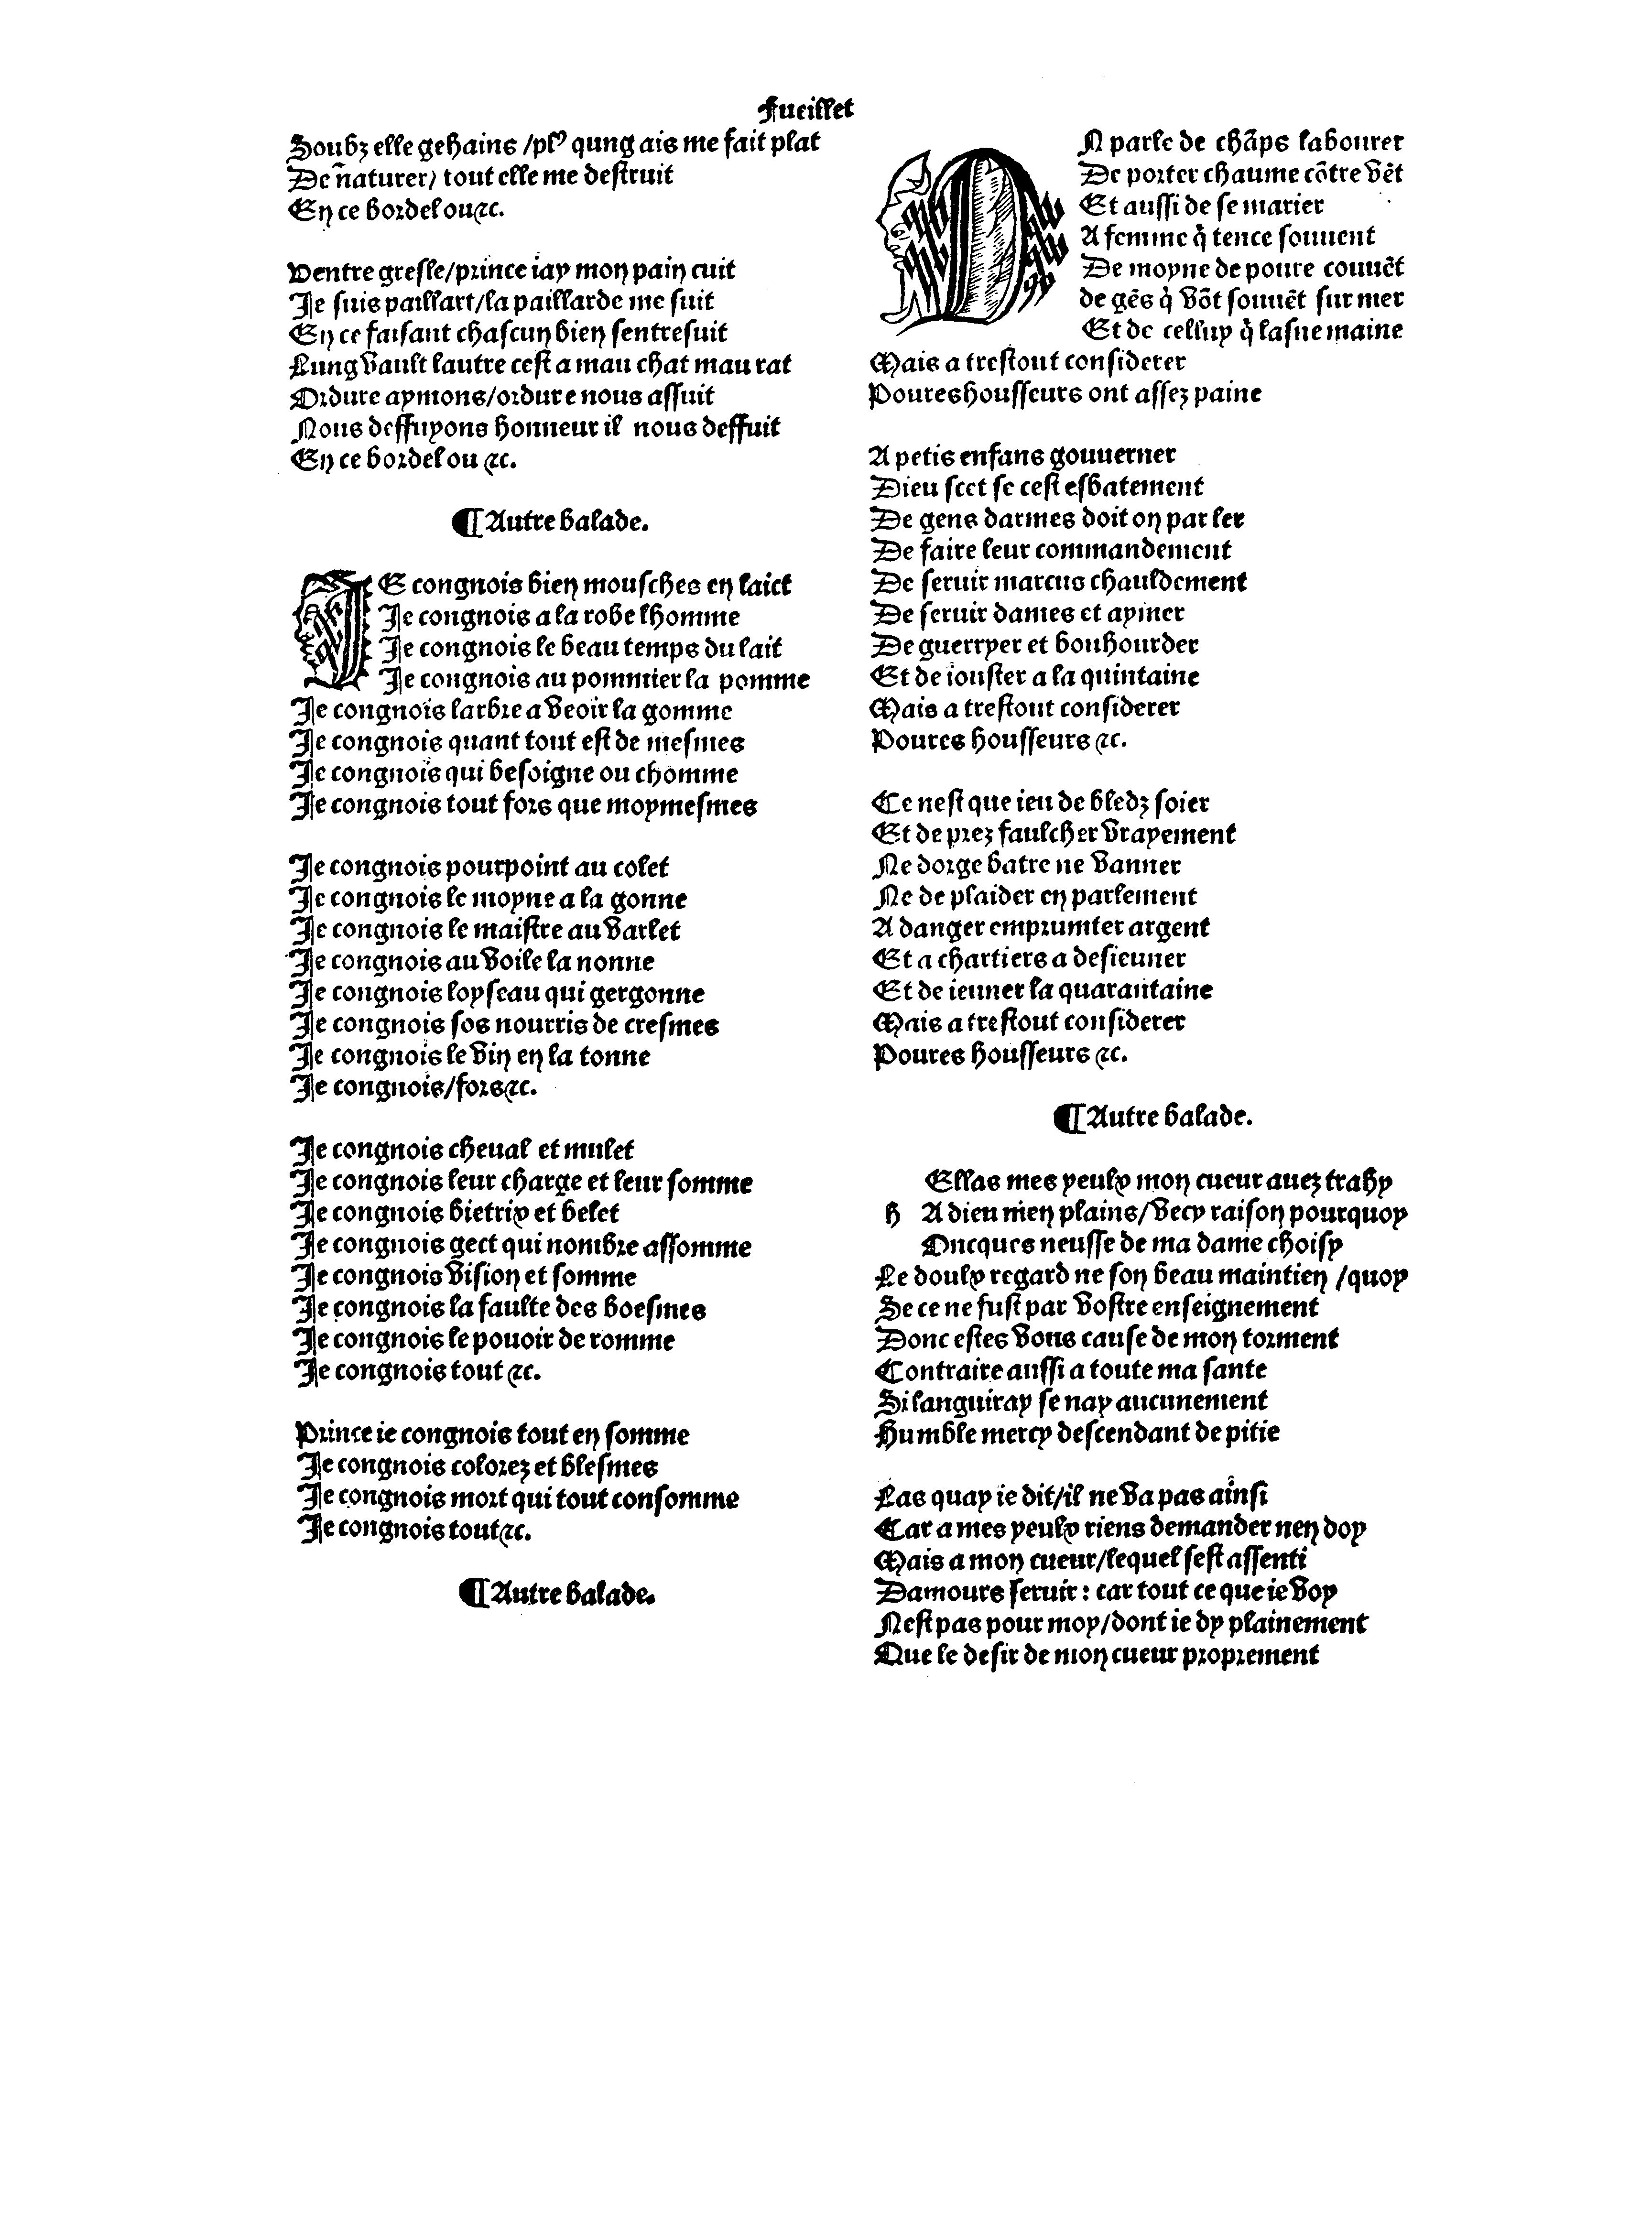 Fueillet
Soubz elle gehains /plꝰ qung ais me fait plat
De n̄aturer/ tout elle me destruit
En ce bordel ou⁊c.
Ventre gresle/prince iay mon pain cuit
Je suis paillart/la paillarde me suit
En ce faisant chascun bien sentresuit
Lung vault lautre cest a mau chat mau rat
Ordure aymons/ordure nous assuit
Nous deffuyons honneur il nous deffuit
En ce bordel ou ⁊c.
¶Autre balade.
JE congnois bien mousches en laict
Je congnois a la robe lhomme
Je congnois le beau temps du lait
Je congnois au pommier la pomme
Je congnois larbre a veoir la gomme
Je congnois quant tout est de mesmes
Je congnois qui besoigne ou chomme
Je congnois tout fors que moymesmes
Je congnois pourpoint au colet
Je congnois le moyne a la gonne
Je congnois le maistre au varlet
Je congnois au voile la nonne
Je congnois loyseau qui gergonne
Je congnois sos nourris de cresmes
Je congnois le vin en la tonne
Je congnois/fors⁊c.
Je congnois cheual et mulet
Je congnois leur charge et leur somme
Je congnois bietrix et belet
Je congnois gect qui nombre assomme
Je congnois vision et somme
Je congnois la faulte des boesmes
Je congnois le pouoir de romme
Je congnois tout ⁊c.
Prince ie congnois tout en somme
Je congnois colorez et blesmes
Je congnois mort qui tout consomme
Je congnois tout⁊c.
¶Autre balade.
ON parle de chāps labourer
De porter chaume cōtre vēt
Et aussi de se marier
A femme q̇ tence souuent
De moyne de poure couuēt
de gēs q̇ vōt souuēt sur mer
Et de celluy q̇ lasne maine
Mais a trestout considerer
Poures housseurs ont assez paine
A petis enfans gouuerner
Dieu scet se cest esbatement
De gens darmes doit on parler
De faire leur commandement
De seruir marcus chauldement
De seruir dames et aymer
De guerryer et bouhourder
Et de iouster a la quintaine
Mais a trestout considerer
Poures housseurs ⁊c.
Ce nest que ieu de bledz soier
Et de prez faulcher vrayement
Ne dorge batre ne vanner
Ne de plaider en parlement
A danger emprumter argent
Et a chartiers a desieuner
Et de ieuner la quarantaine
Mais a trestout considerer
Poures housseurs ⁊c.
¶Autre balade.
hEllas mes yeulx mon cueur auez trahy
A dieu men plains/vecy raison pourquoy
Oncques neusse de ma dame choisy
Le doulx regard ne son beau maintien /quoy
Se ce ne fust par vostre enseignement
Donc estes vous cause de mon torment
Contraire aussi a toute ma sante
Si languiray se nay aucunement
Humble mercy descendant de pitie
Las quay ie dit/il ne va pas ainsi
Car a mes yeulx riens demander nen doy
Mais a mon cueur/lequel sest assenti
Damours seruir : car tout ce que ie voy
Nest pas pour moy/dont ie dy plainement
Que le desir de mon cueur proprement